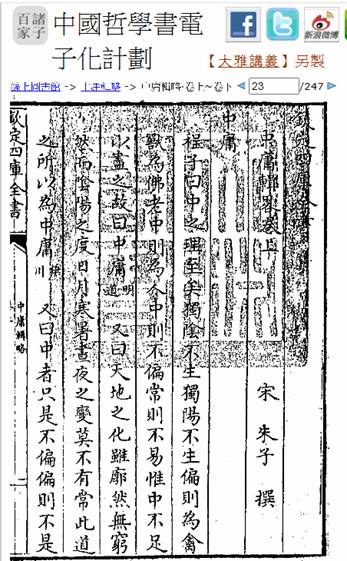 諸子百家
中國哲學書電子化計劃
新浪微博
【大雅講義】另製
線上圖書館 -> 中庸輯略 -> 中庸輯略·卷上~卷下
23 /247
欽定四庫全書
中庸輯略卷上
宋 朱子 撰
中庸
程子曰中之理至矣獨陰不生獨陽不生偏則為禽
獸為佛老中則為人中則不偏常則不易惟中不足
以盡之故曰中庸 明道 又曰天地之化雖廓然無窮
然而陰陽之度日月寒暑晝夜之變莫不有常此道
之所以為中庸 伊川 又曰中者只是不偏偏則不是
欽定四庫全書
中庸輯略
二